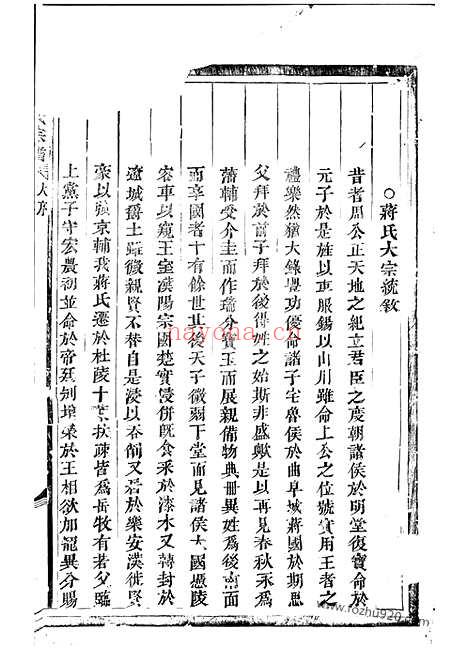 ○蔣氏大宗統敘
昔者周公正天地之紀立君臣之度朝諸侯於明堂復寶命於
元子於是旌以車服錫以山川雖命上公之位號實用王者之
禮樂然猶大錄專功優命諸子宅魯侯於曲阜域蔣國於期思
父拜於前子拜於後得姓之始斯非盛歟是以再見春秋永爲
藩輔受介圭而作瑞分寶玉而展親備物典冊異姓爲後南面
而享國者十有餘世其後天子微弱下堂而見諸侯大國憑陵
容車以窺王室漢陽宗國楚實慢併旣食釆於漆木又轉封於
遼城爵土雖微親賢不替自是淩以吞韻又居於樂安漢徙賢
豪以強京輔我蔣氏遷於杜陵十葉扶疎皆爲岳牧有若父臨
上黨子守宏農初並命於帝廷列埰榮於王相欲加寵異分賜
大宗譜
大序
nayona.cn
www.rozhu920.com